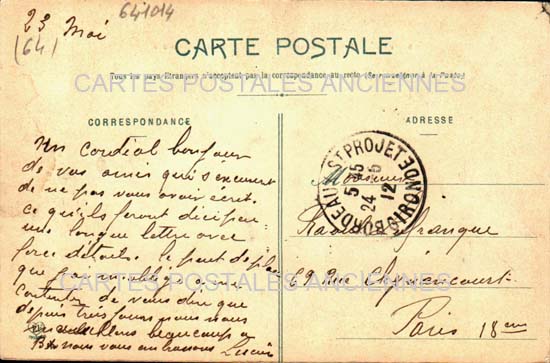 23 Mai
(64)
641014
CARTE POSTALE
Tous les pays étrangers n'acceptent pas la correspondance au recto (Se renseigner à la Poste)
CARTES POSTALES ANCIENNES
CORRESPONDANCE
ADRESSE
Un cordial bonjour
de vos amis qui s'excusent
de ne pas vous avoir écrit
ce qu'ils feront
une longue lettre avec
force détails. Le peu de place
que
de vous dire que
depuis trois jours nous nous
beaucoup
nous vous embrassons Lucien
BORDEAUX ST PROJET GIRONDE
5 45
24 5
12
Monsieur
69 Rue
Paris 18em
CARTES POSTALES ANCIENNES